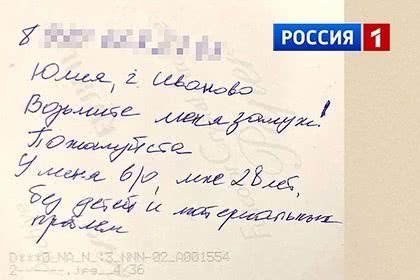 РОССИЯ 1
8
Юлия, г. Иваново
Возьмите меня замуж!
Пожалуйста
У меня в/о, мне 28 лет,
без детей и материальных
проблем
D***0_NA_N_*3_NNN-02_A001554
2-******.jpg__4/36